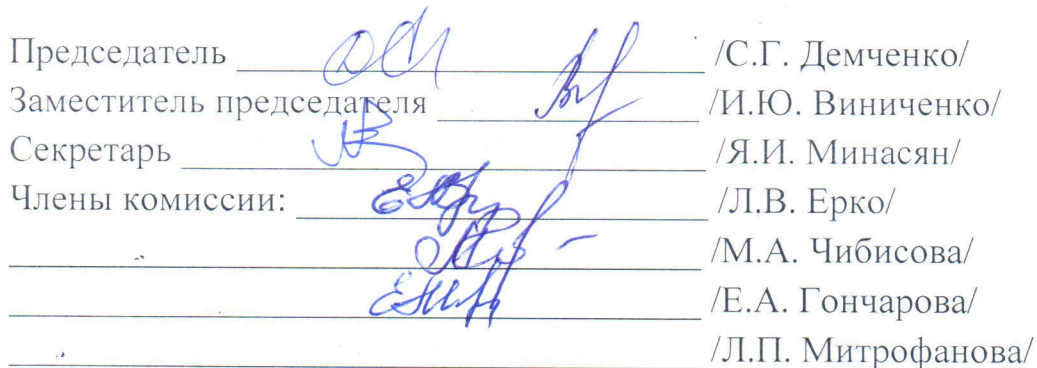 Председатель /С.Г. Демченко/
Заместитель председателя /И.Ю. Виниченко/
Секретарь /Я.И. Минасян/
Члены комиссии: /Л.В. Ерко/
/М.А. Чибисова/
/Е.А. Гончарова/
/Л.П. Митрофанова/